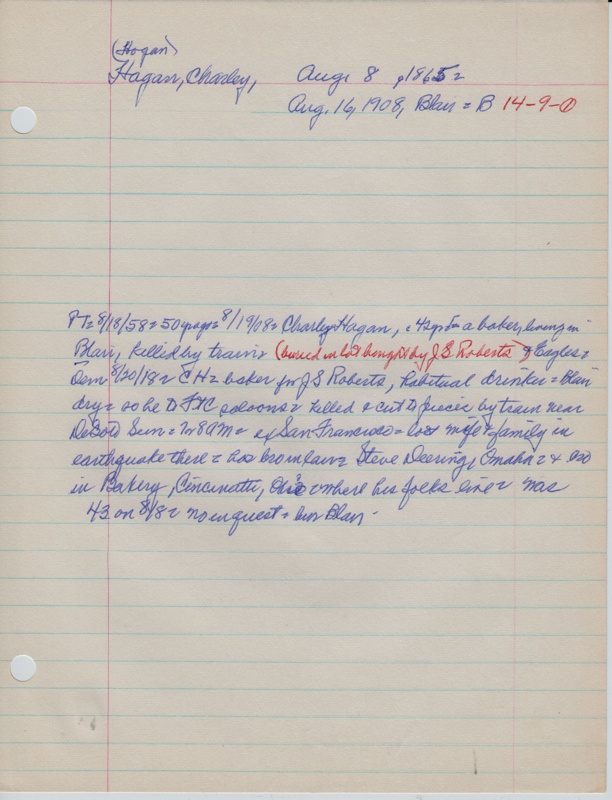 (Hogan)
Hagan, Charley, Aug. 8, 1865 =
Aug. 16, 1908, Blair = B 14-9-①
PT= 8/18/58 = 50 yrs ago = 8/19/08 = Charley Hagan, a baker, living in
Blair, killed by train, (buried in lot bought by J.S. Roberts & Eagles =
Dem 8/20/18 = CH = baker for J S Roberts, habitual drinker = Blair
dry = so he to FtC saloons = killed & cut to pieces by train near
DeSoto Sun = = ex San Francisco = lost wife & family in
earthquake there = has bro in law = Steve Deering, Omaha = &
in Bakery, Cincinatti, Ohio = where his folks live = was
43 on 8/8 = no inquest = Blair -